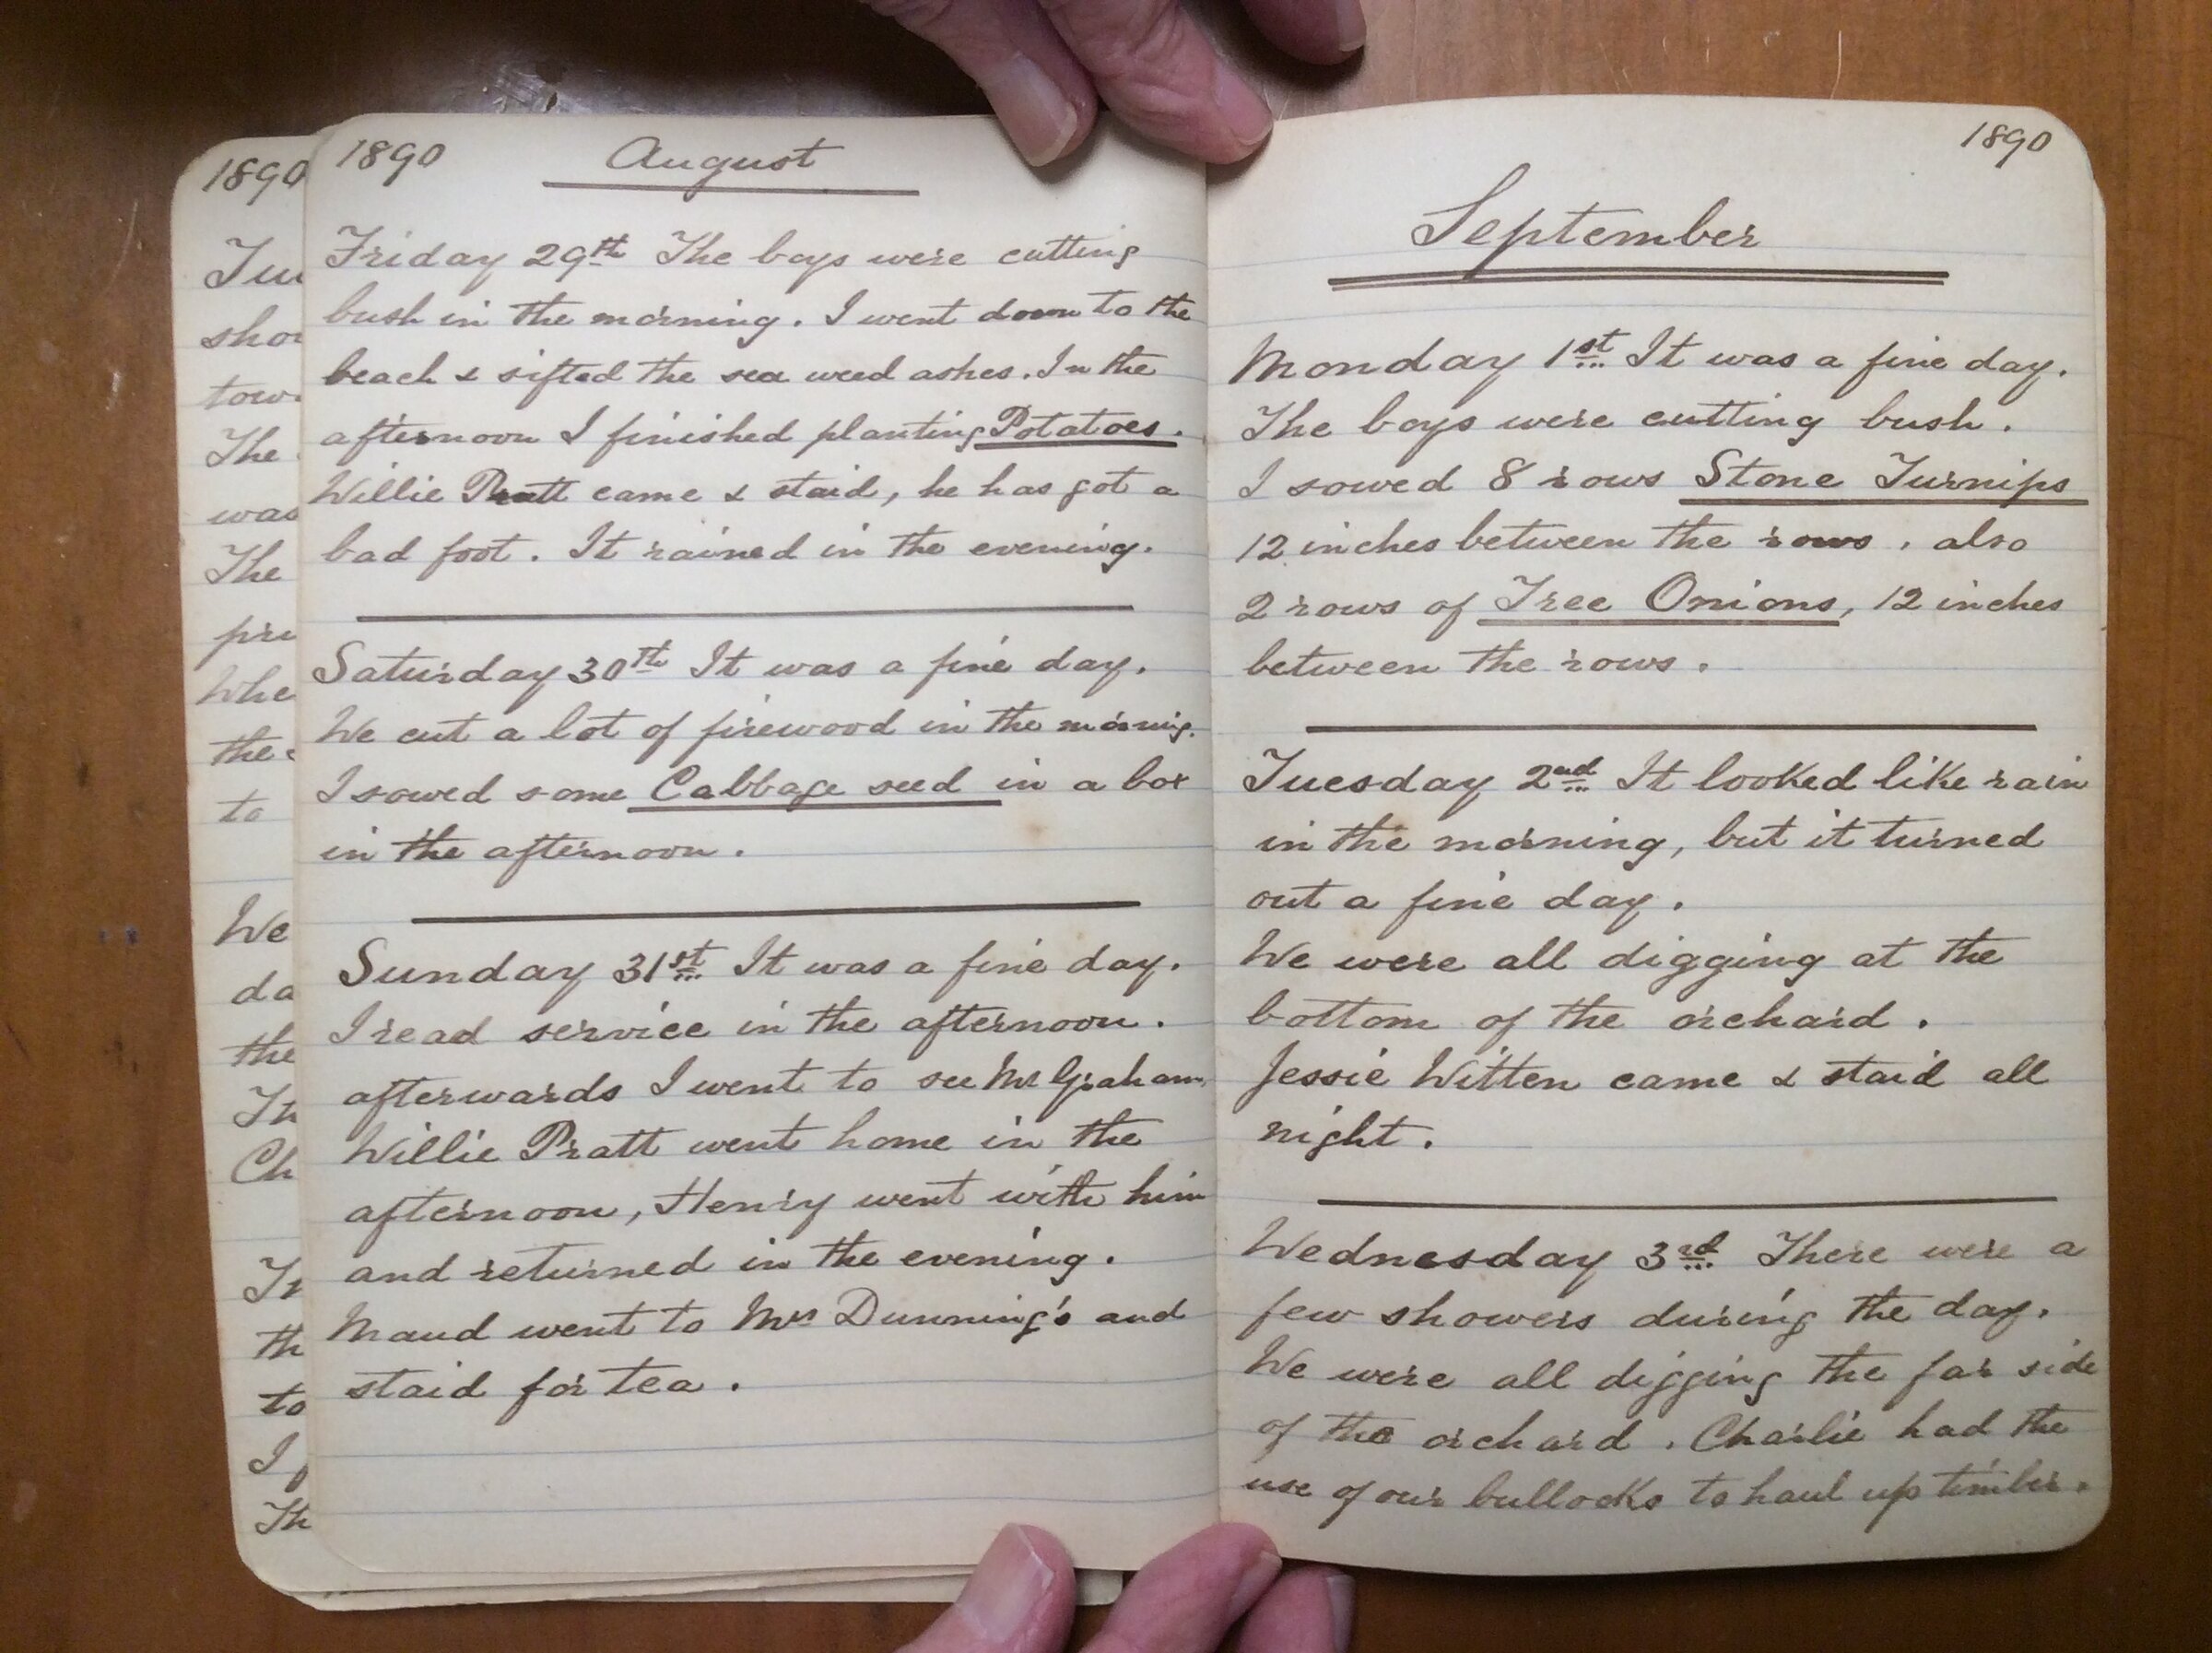 1890
Tu
shor
tow
The
was
The
pri
Whe
the
to
We
da
the
In
Ch
In
th
to
I
Th
1890 August
Friday 29th The boys were cutting
bush in the morning. I went down to the
beach & sifted the sea weed ashes. In the
afternoon I finished planting Potatoes.
Willie Pratt came & staid, he has got a
bad foot. It rained in the evening.
Saturday 30th It was a fine day.
We cut a lot of firewood in the morning.
I sowed some Cabbage seed in a box
in the afternoon.
Sunday 31st It was a fine day.
I read service in the afternoon.
afterwards I went to see Mr Graham
Willie Pratt went home in the
afternoon, Henry went with him
and returned in the evening.
Maud went to Mrs Dunning's and
staid for tea.
1890
September
Monday 1st It was a fine day.
The boys were cutting bush.
I sowed 8 rows Stone Turnips
12 inches between the rows, also
2 rows of Tree Onions, 12 inches
between the rows.
Tuesday 2nd It looked like rain
in the morning, but it turned
out a fine day.
We were all digging at the
bottom of the orchard.
Jessie Witten came & staid all
night.
Wednesday 3rd There were a
few showers during the day.
We were all digging the far side
of the orchard. Charlie had the
use of our bullocks to haul up timber.